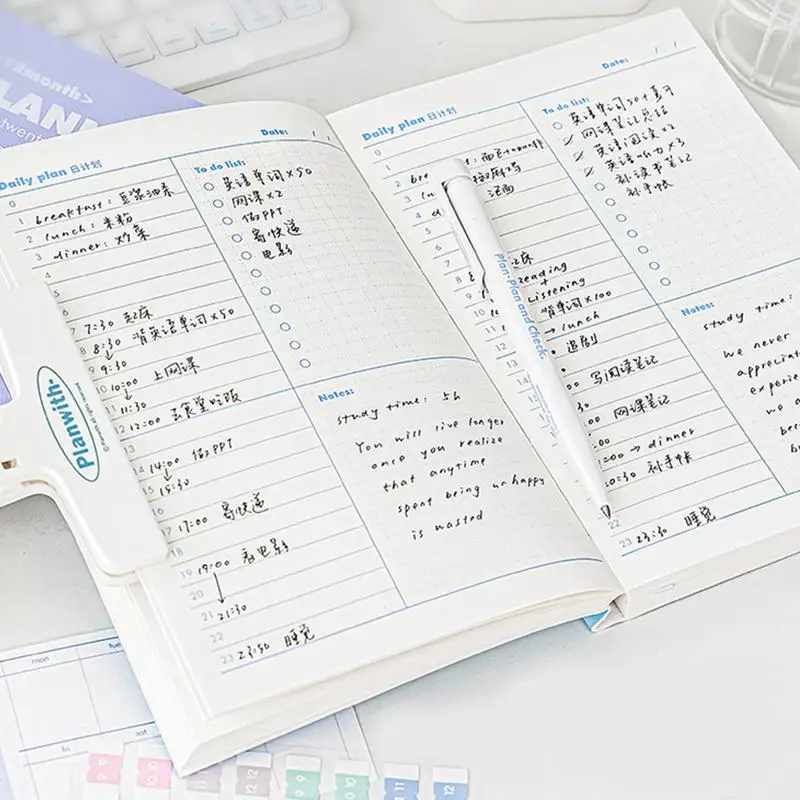 12month>
PLANN
twenty
Daily plan 日计划
Date: / /
0
1 breakfast: 豆浆油条
2 lunch: 米粉
3 dinner: 炒菜
4
5
6
7 7:30 起床
8 8:30 背英语单词×50
9 9:30
10 10:00 上网课
11 11:30
12 12:00 去食堂吃饭
13
14 14:00 做PPT
15 15:30
16
17 17:00 寄快递
18
19 19:00 看电影
20
21 21:30
22
23 23:50 睡觉
To do list:
英语单词×50
网课×2
做PPT
寄快递
电影
Notes:
study time: 5h
You will live longer
once you realize
that anytime
spent being unhappy
is wasted
Daily plan 日计划
Date: / /
0
1
2 bre
3 lu
4 d
5
6
7
8 起床
9 reading
+
10 Listening
11 背单词×100
→ lunch
12 追剧
13
14 写阅读笔记
网课笔记
:00 → dinner
0:30 补手帐
22
23 23:30 睡觉
To do list:
网课笔记总结
英语阅读×2
英语听力×3
补读书笔记
补手帐
Notes:
study time:
we never
appreciat
experie
we a
bec
bu
Plan·Plan and Check.
Planwith-
mon
tue
fri
sat
9 9
10 10
11
12 12
9 9
10